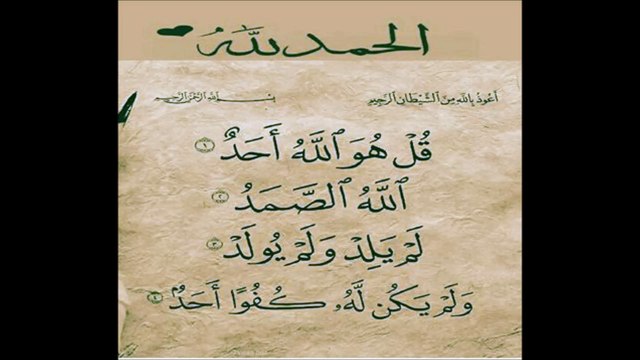 الحمد لله
أعوذ بالله من الشيطان الرجيم بسم الله الرحمن الرحيم
قُلْ هُوَ ٱللَّهُ أَحَدٌ ١
ٱللَّهُ ٱلصَّمَدُ ٢
لَمْ يَلِدْ وَلَمْ يُولَدْ ٣
وَلَمْ يَكُن لَّهُۥ كُفُوًا أَحَدٌۢ ٤